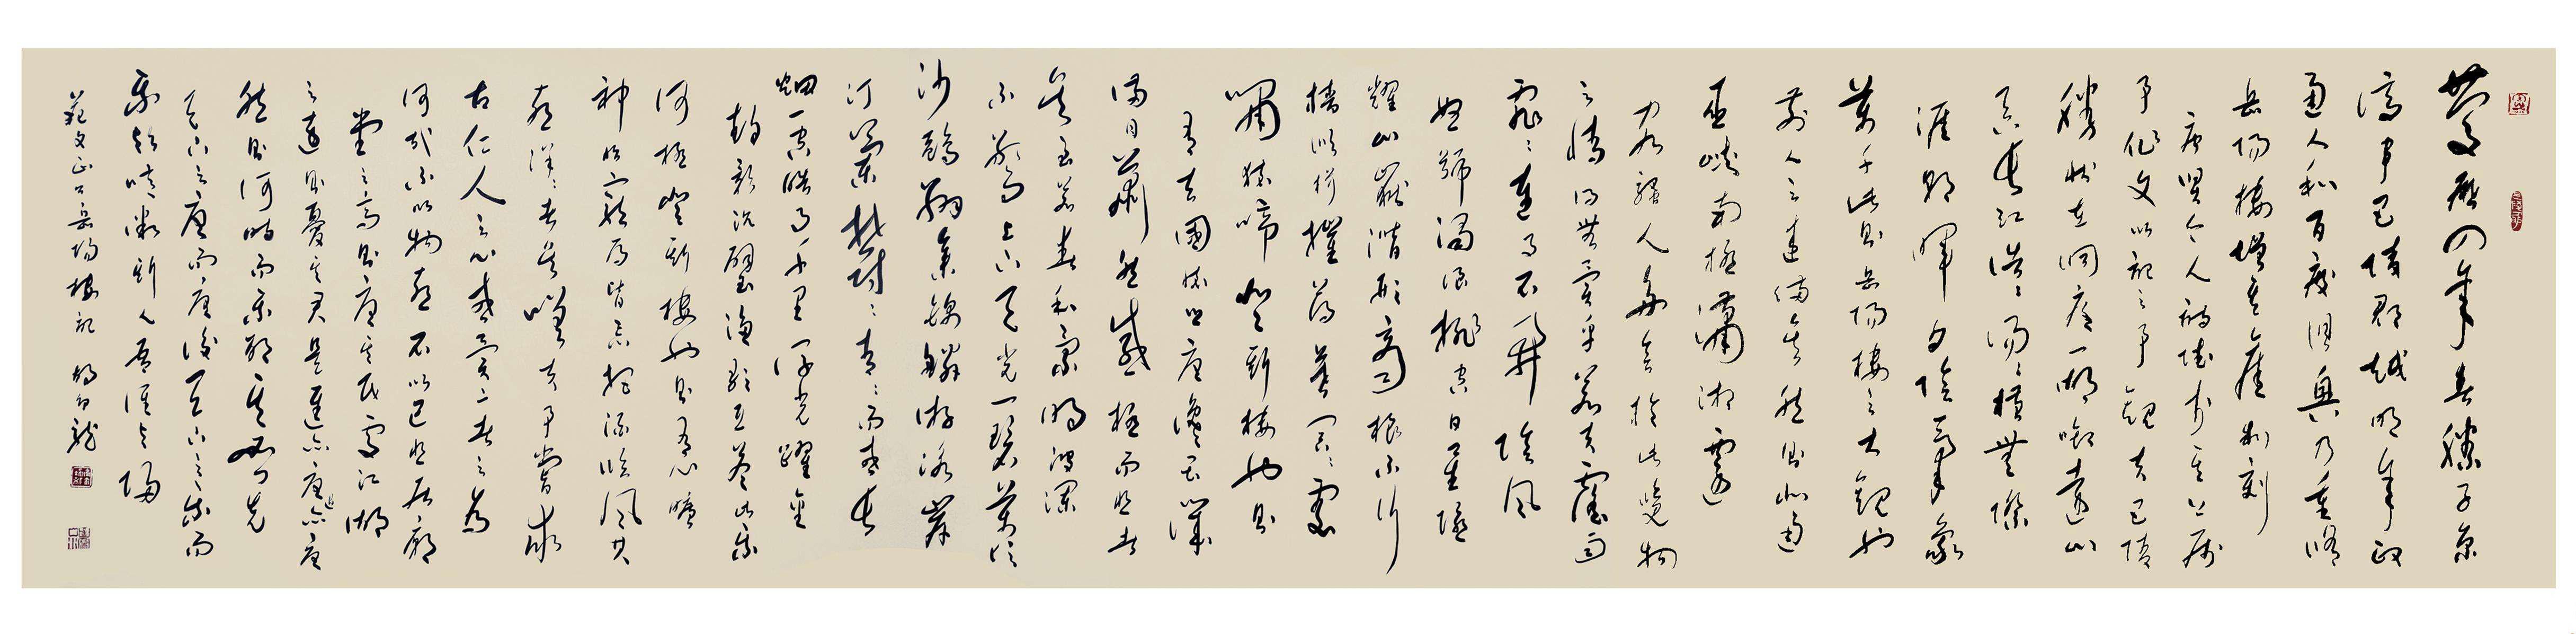 慶曆四年春滕子京
謫守巴陵郡越明年政
通人和百廢俱興乃重修
岳陽樓增其舊制刻
唐賢今人詩賦於其上屬
予作文以記之予觀夫巴陵
勝狀在洞庭一湖銜遠山
吞長江浩浩湯湯橫無際
涯朝暉夕陰氣象
萬千此則岳陽樓之大觀也
前人之述備矣然則北通
巫峽南極瀟湘遷
客騷人多會於此覽物
之情得無異乎若夫霪雨
霏霏連月不開陰風
怒號濁浪排空日星隱
耀山嶽潛形商旅不行
檣傾楫摧薄暮冥冥虎
嘯猿啼登斯樓也則
有去國懷鄉憂讒畏譏
滿目蕭然感極而悲者
矣至若春和景明波瀾
不驚上下天光一碧萬頃
沙鷗翔集錦鱗游泳岸
汀蘭鬱鬱青青而或長
煙一空皓月千里浮光躍金
靜影沉璧漁歌互答此樂
何極登斯樓也則有心曠
神怡寵辱皆忘把酒臨風其
喜洋洋者矣嗟夫予嘗求
古仁人之心或異二者之為
何哉不以物喜不以己悲居廟
堂之高則憂其民處江湖
之遠則憂其君是進亦憂退亦憂
然則何時而樂耶其必曰先
天下之憂而憂後天下之樂而
樂歟噫微斯人吾誰與歸
范文正公岳陽樓記